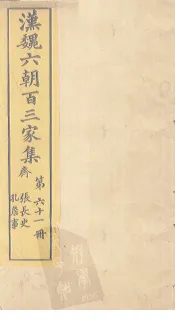 漢魏六朝百三家集
齊
第六十一冊
張長史
孔詹事